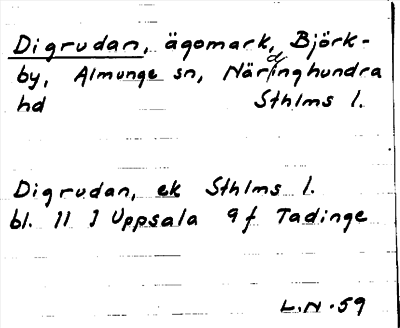 Digrudan, ägomark, Björk-
by, Almunge sn, Närdinghundra
hd Sthlms l.
Digrudan, ek Sthlms l.
bl. 11 I Uppsala 9f Tadinge
L.N. 59